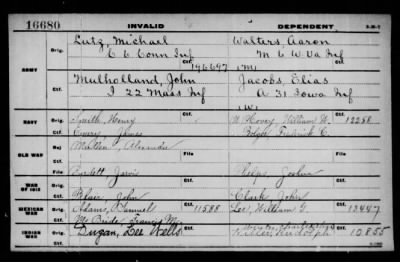 16680 INVALID DEPENDENT
ARMY
Orig. Lutz, Michael Walters, Aaron
E 6 Conn Inf M 6 W Va Inf
Ctf. 196697 (M)
Orig. Mulholland, John Jacobs, Elias
I 22 Mass Inf A 31 Iowa Inf
Ctf. (W)
NAVY
Orig. Smith, Henry William H. 12258
Ctf. Emery, James Fredrick C.
OLD WAR
Rej. Alexander File
Ctf. Bartlett Jarvis File Phelps, Joshua
WAR OF 1812
Orig.
Ctf. Blair, John Clark John
MEXICAN WAR
Orig. Adams, Samuel 11588 Lee, William G. 13447
Ctf. McBride, Francis M.
INDIAN WAR
Orig. Duzan, Lee Wells Rudolph 10855
Ctf.